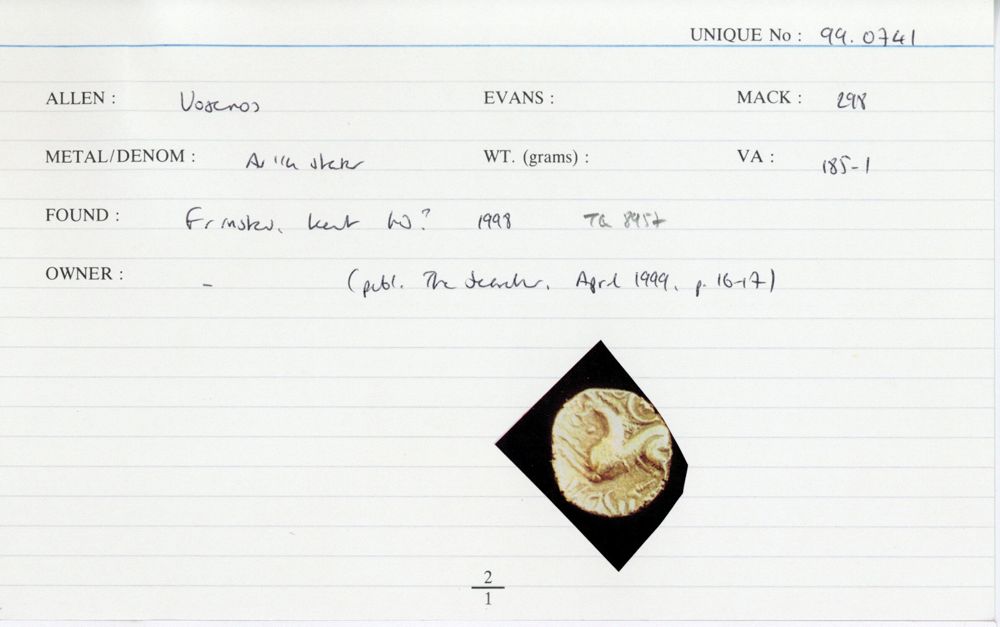 UNIQUE No : 99.0741
ALLEN : Vosenos EVANS : MACK : 298
METAL/DENOM : WT. (grams) : VA : 185-1
FOUND : Kent 1998 TQ 8957
OWNER : - (publ. The Searcher, April 1999, p. 16-17)
2
1